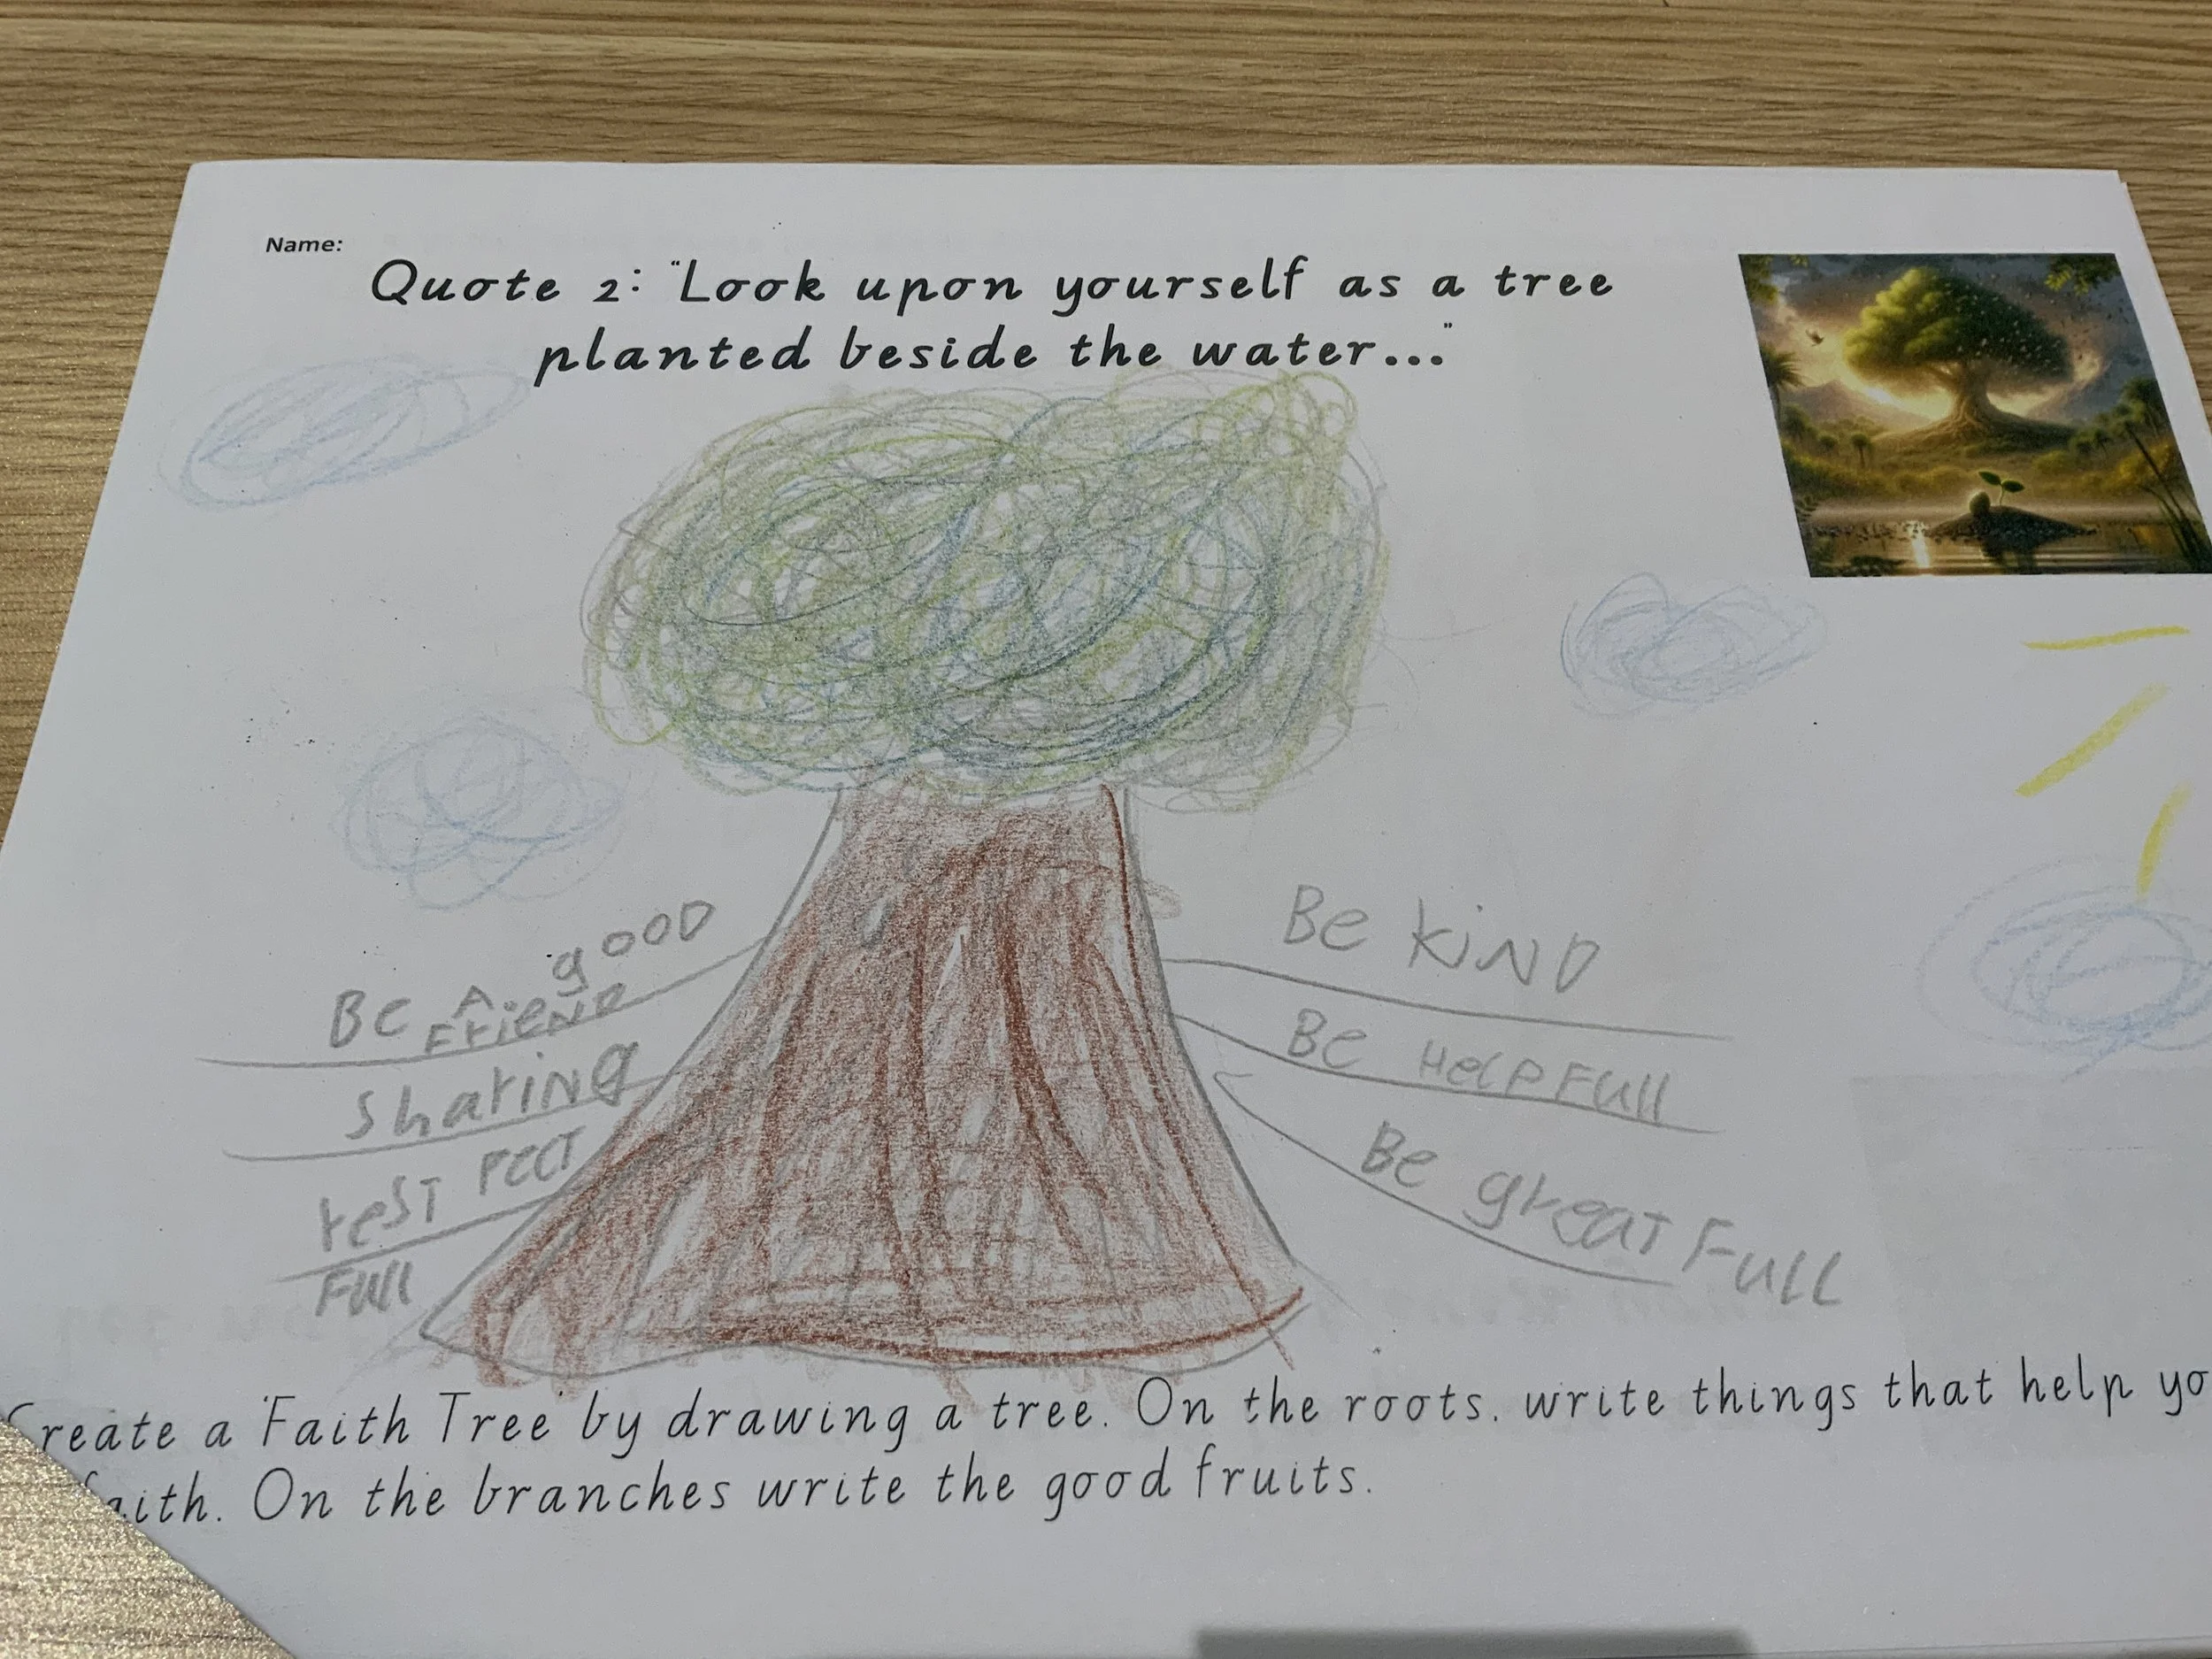 Name:
Quote 2: "Look upon yourself as a tree
planted beside the water..."
Be A good
Friend
Sharing
resT PecT
Full
Be kiND
Be HelpFull
Be greaT Full
Create a 'Faith Tree' by drawing a tree. On the roots, write things that help yo
faith. On the branches write the good fruits.